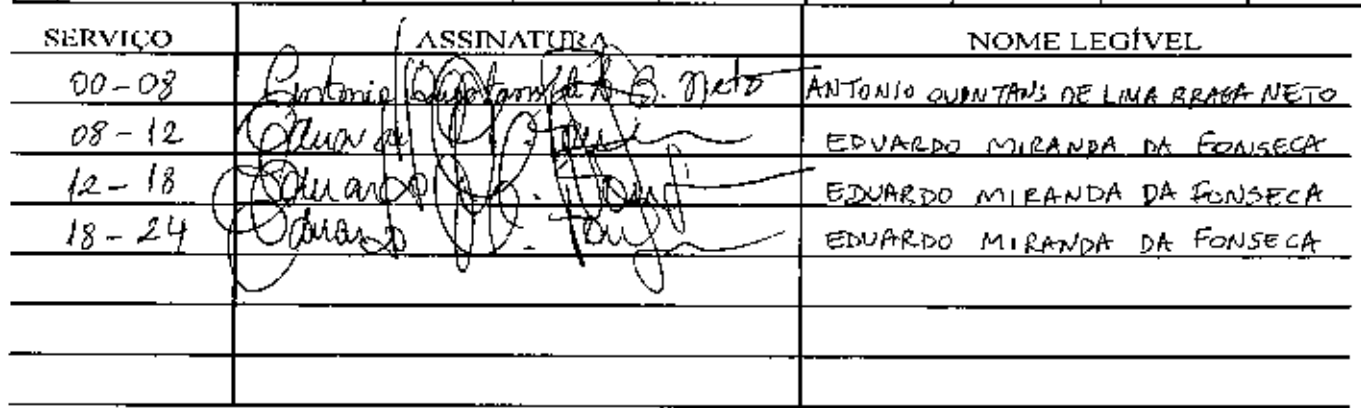 SERVIÇO ASSINATURA NOME LEGÍVEL
00-08 Antonio Quintans de L. B. Neto ANTONIO QUINTANS DE LIMA BRAGA NETO
08-12 Eduardo M. EDUARDO MIRANDA DA FONSECA
12-18 Eduardo M. EDUARDO MIRANDA DA FONSECA
18-24 Eduardo M. EDUARDO MIRANDA DA FONSECA